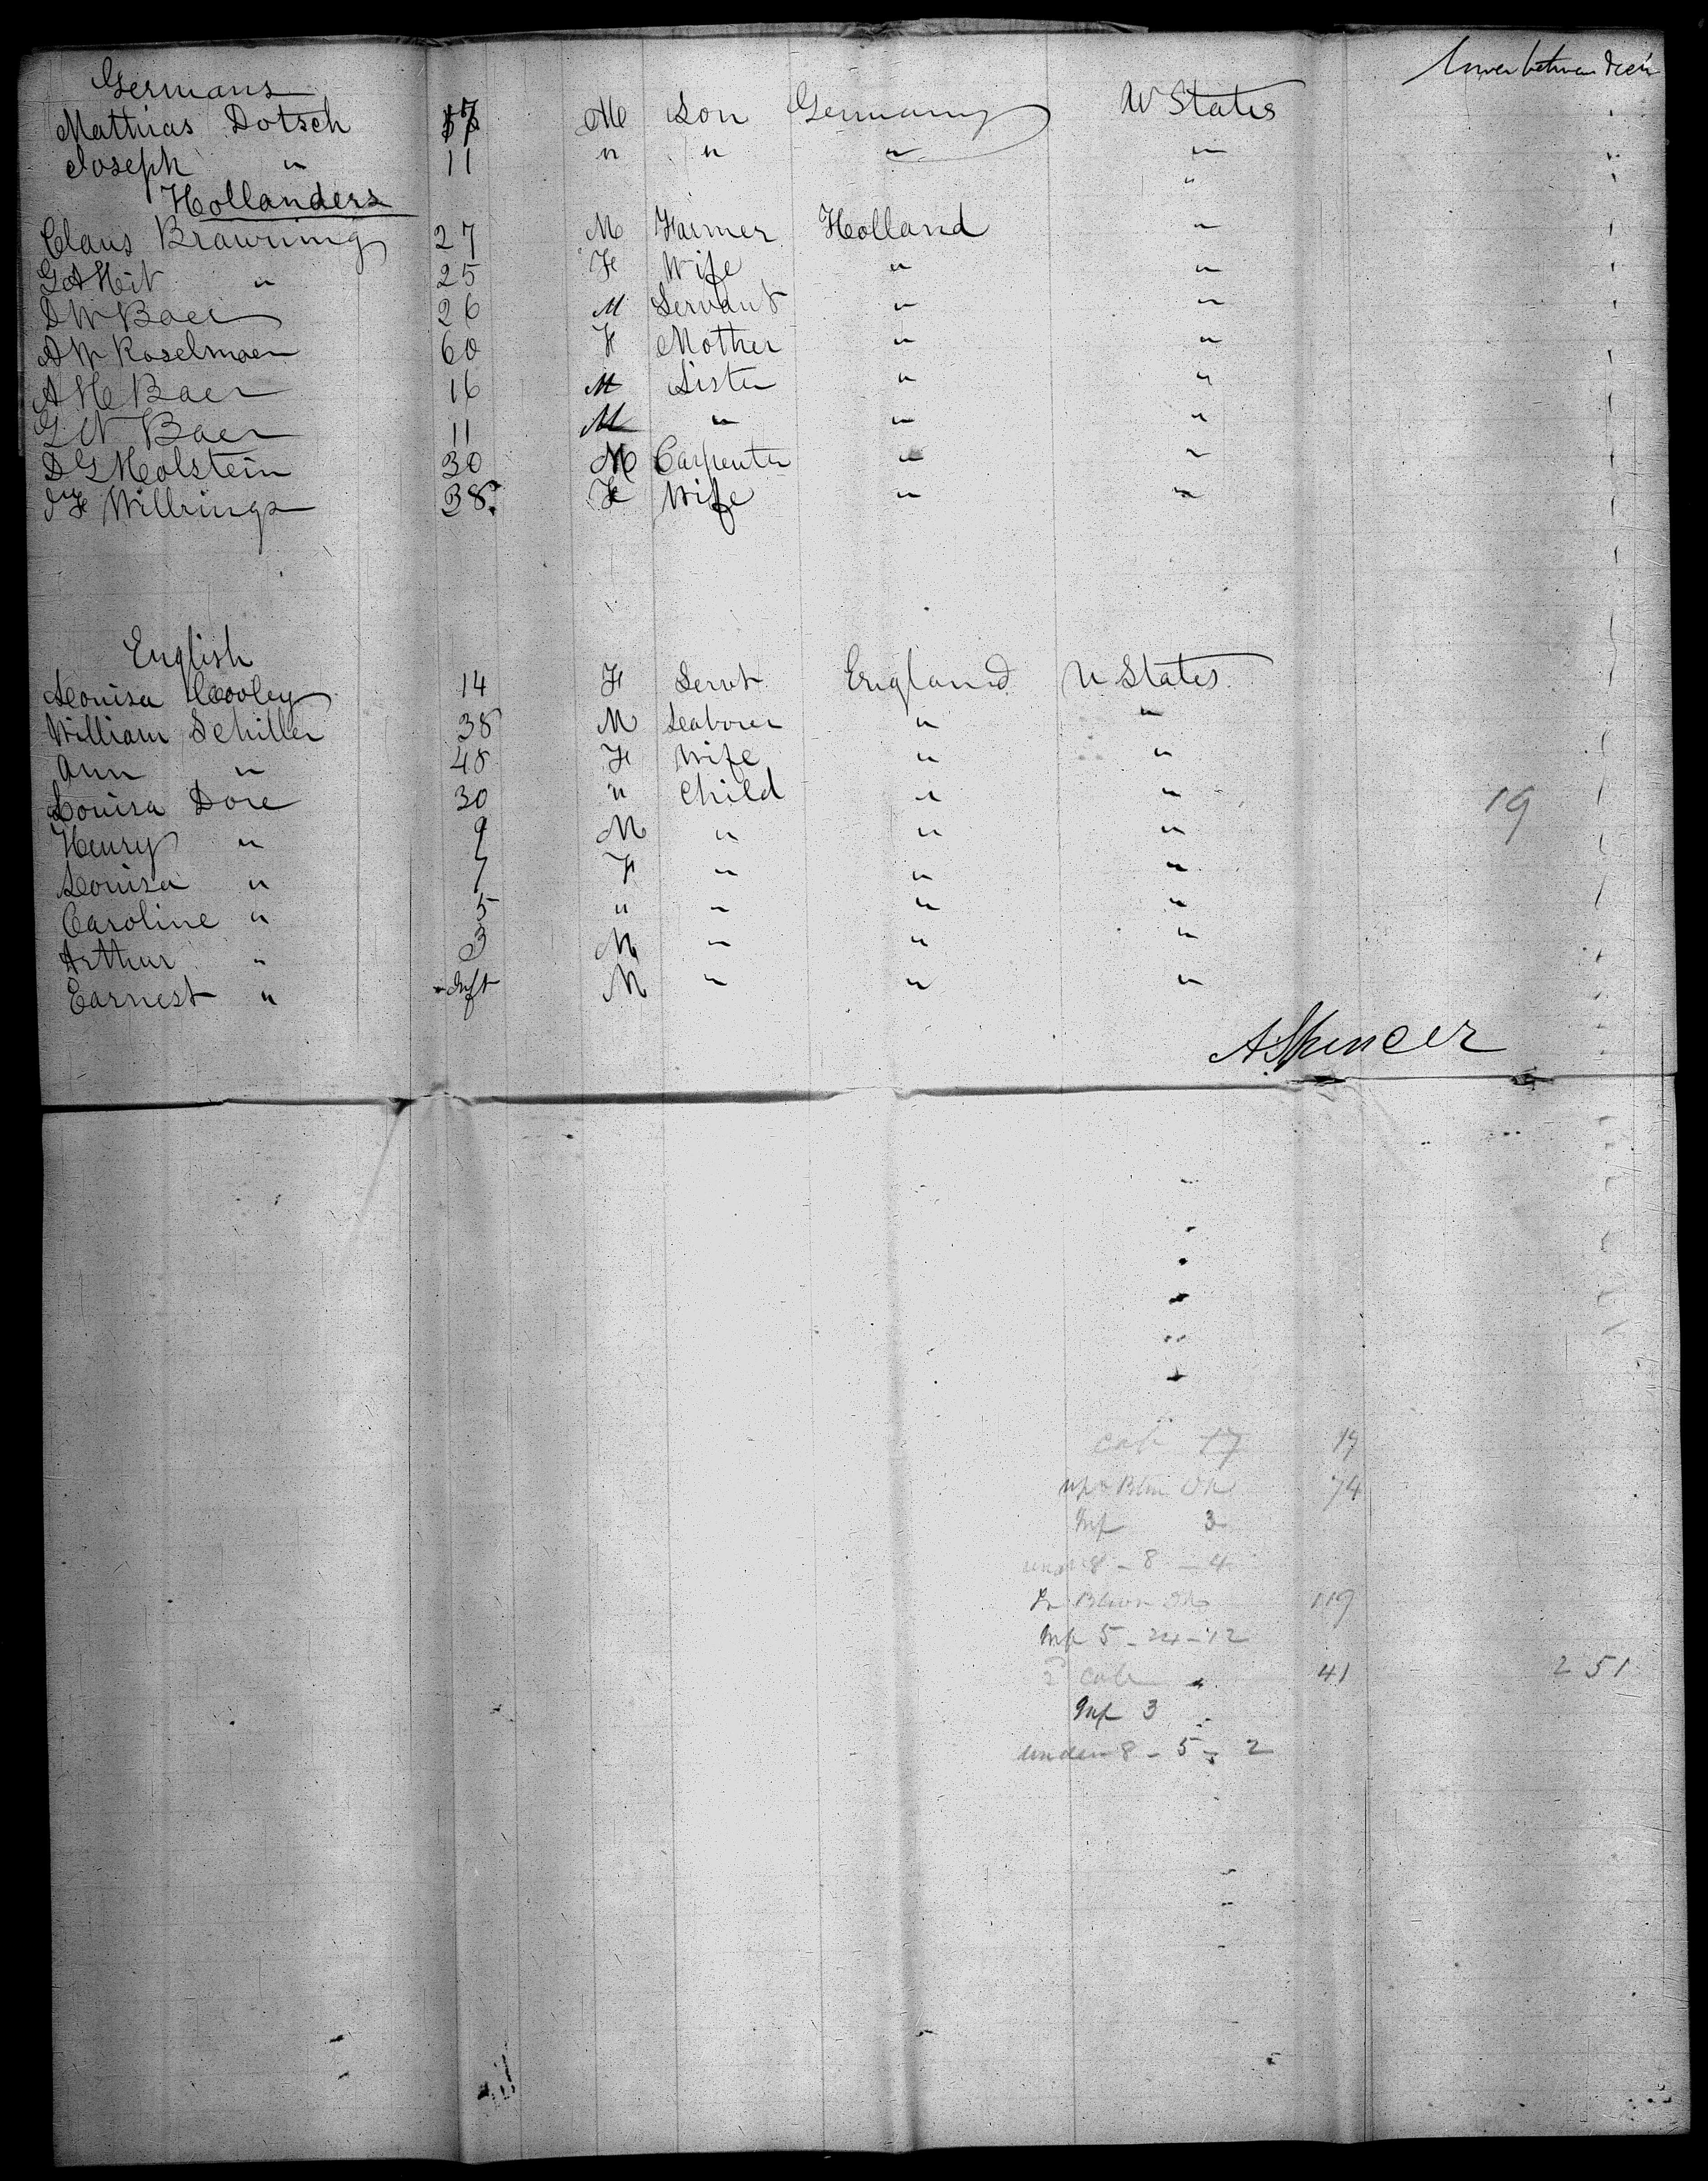 Lower between Deck
Germans
Matthias Dotsch M Son Germany U States
Joseph " 11 " " " "
Hollanders "
Claus Brawning 27 M Farmer Holland "
" 25 F Wife " "
D W Baer 26 M Servant " "
A W Koselmaen 60 F Mother " "
A H Baer 16 M Sister " "
G W Baer 11 M " " "
D G Holstein 30 M Carpenter " "
Willrings 38. F Wife " "
English
Louisa Cooley 14 F Servt England U States
William Schiller 38 M Laborer " "
Ann " 48 F Wife " "
Louisa Dore 30 " Child " " 19
Henry " 9 M " " "
Louisa " 7 F " " "
Caroline " 5 " " " "
Arthur " 3 M " " "
Earnest " Inft M " " "
A. Spencer
Cab 17 19
74
Inf 3
under 8 - 8 - 4
119
Inf 5 - 24 - 12
2 Cab " 41 251
Inf 3
under 8 - 5 - 2